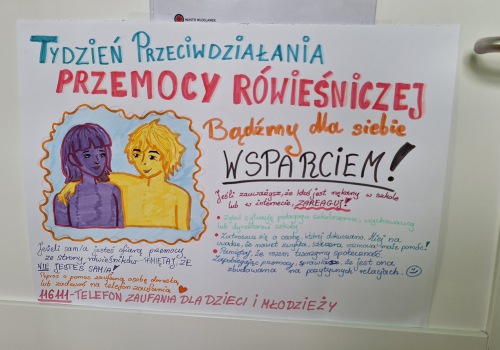 MIASTO WŁOCŁAWEK
TYDZIEŃ PRZECIWDZIAŁANIA
PRZEMOCY RÓWIEŚNICZEJ
Bądźmy dla siebie
WSPARCIEM!
Jeśli zauważysz, że ktoś jest nękany w szkole
lub w internecie, ZAREAGUJ!
• Zgłoś sytuację pedagogowi szkolnemu, wychowawcy
lub dyrektorowi szkoły
• Zatroszcz się o osobę, której dokuczano. Miej na
uwadze, że nawet zwykła, szczera rozmowa może pomóc!
• Pamiętaj, że razem tworzymy społeczność.
Zapobiegając przemocy, sprawiasz, że jest ona
zbudowana "na pozytywnych" relacjach. ☺
Jeżeli sam/a jesteś ofiarą przemocy
ze strony rówieśników - PAMIĘTAJ, ŻE
NIE JESTEŚ SAM/A!
Poproś o pomoc zaufaną osobę dorosłą,
lub zadzwoń na telefon zaufania
116111 - TELEFON ZAUFANIA DLA DZIECI I MŁODZIEŻY